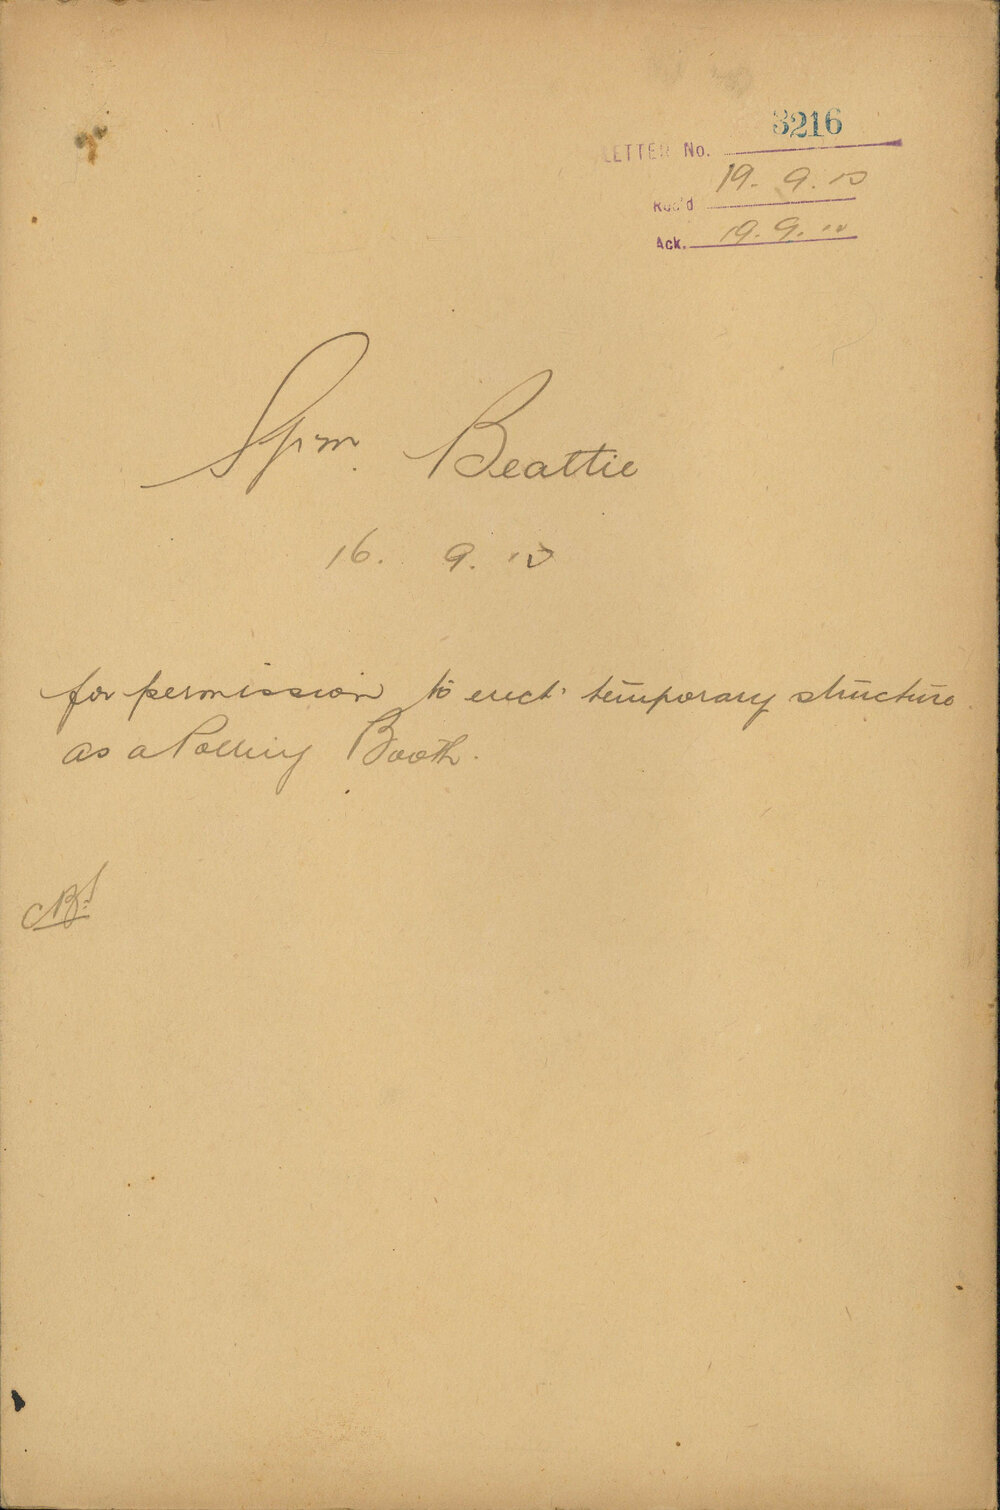 3216
LETTER No.
Rec'd 19. 9. 10
Ack. 19. 9. 10
Beattie
16. 9. 10
for permission to erect temporary structure
as a Polling Booth.